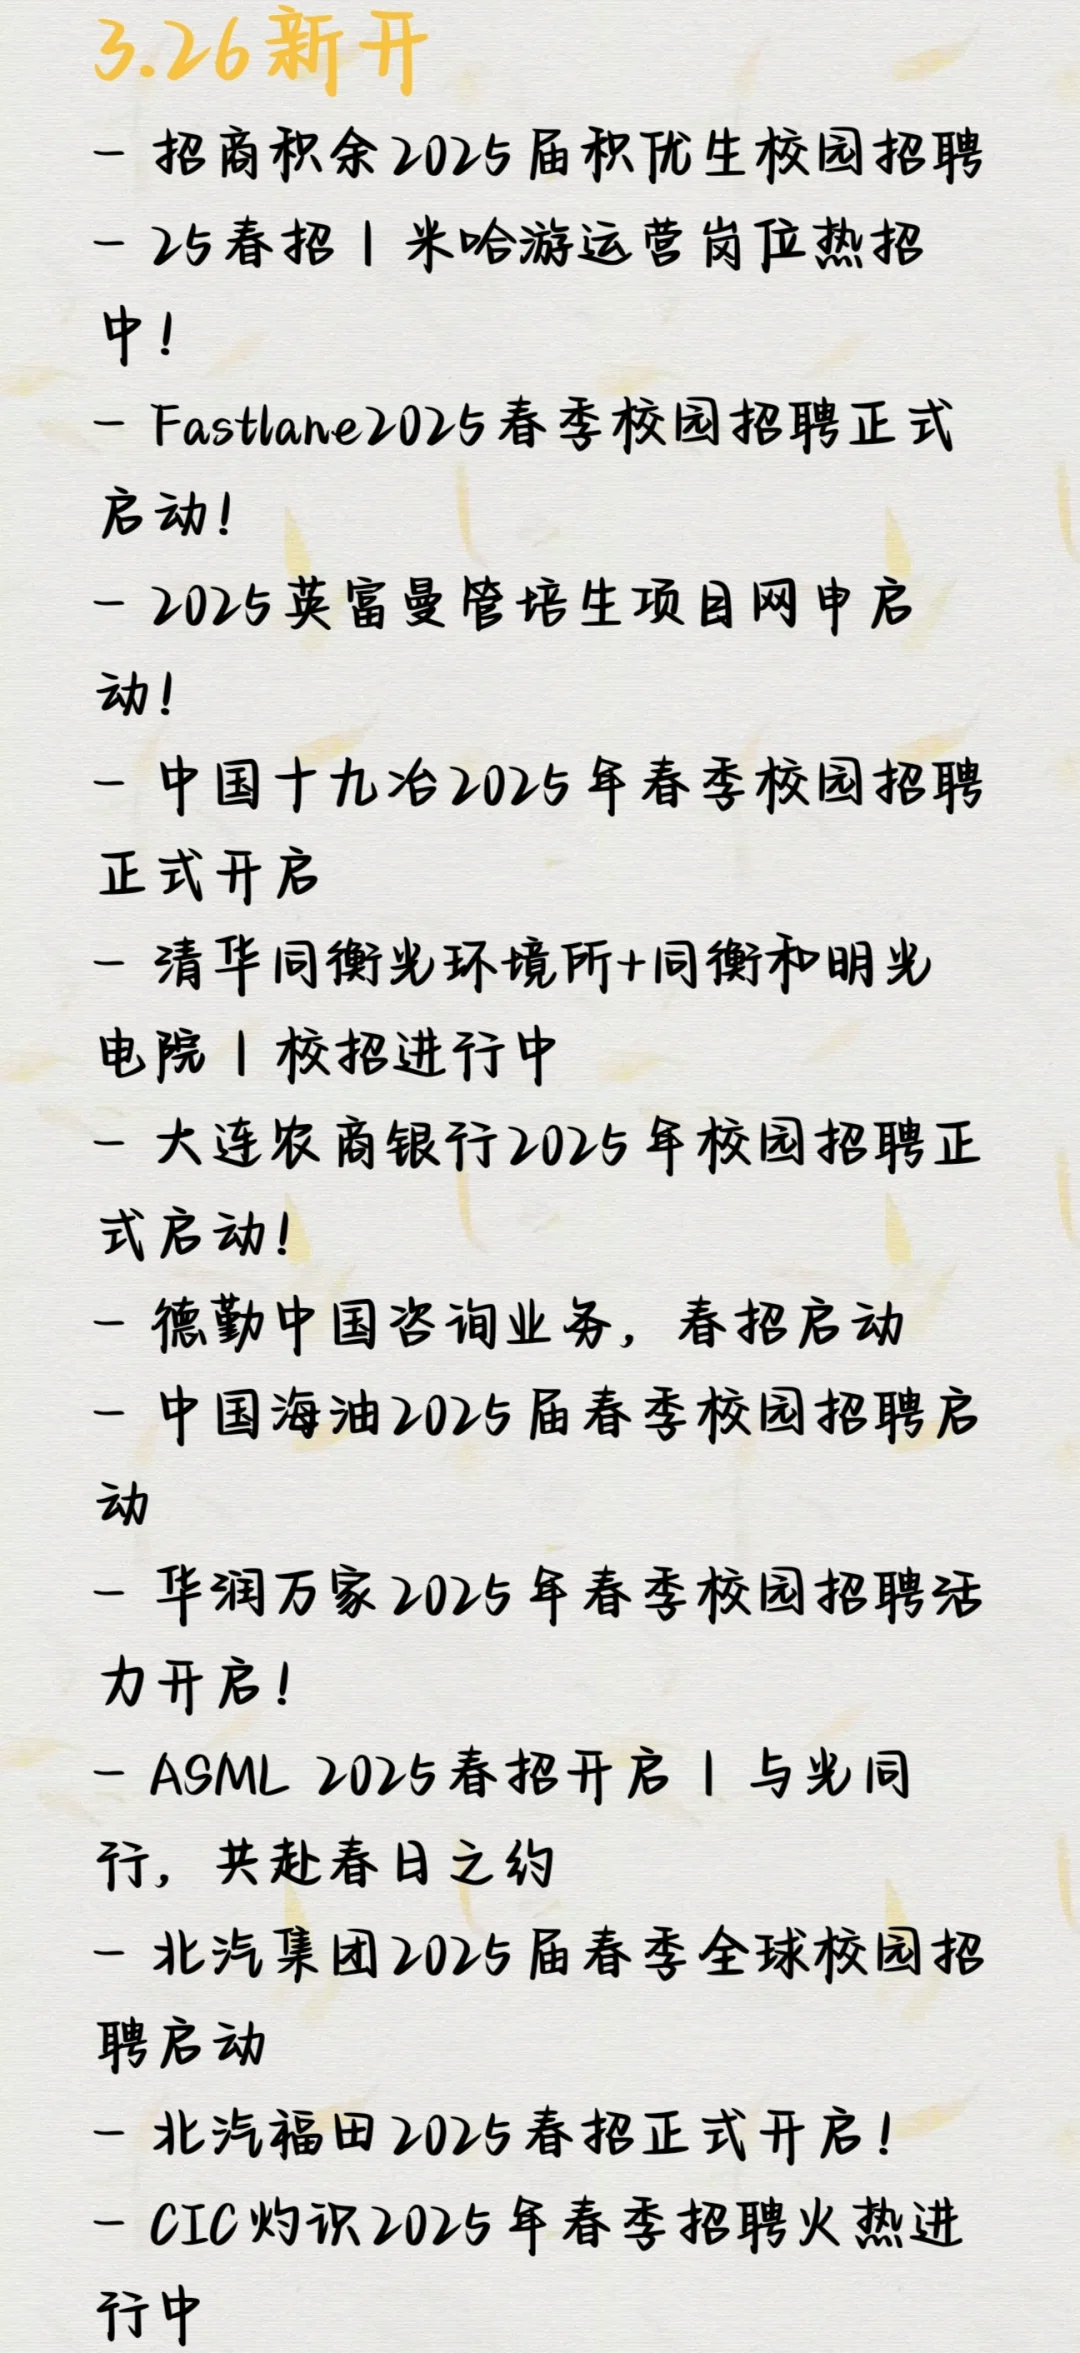 3.26新开
- 招商积余2025届积优生校园招聘
- 25春招 | 米哈游运营岗位热招
中！
- Fastlane2025春季校园招聘正式
启动！
- 2025英富曼管培生项目网申启
动！
- 中国十九冶2025年春季校园招聘
正式开启
- 清华同衡光环境所+同衡和明光
电院 | 校招进行中
- 大连农商银行2025年校园招聘正
式启动！
- 德勤中国咨询业务，春招启动
- 中国海油2025届春季校园招聘启
动
- 华润万家2025年春季校园招聘活
力开启！
- ASML 2025春招开启 | 与光同
行，共赴春日之约
- 北汽集团2025届春季全球校园招
聘启动
- 北汽福田2025春招正式开启！
- CIC灼识2025年春季招聘火热进
行中